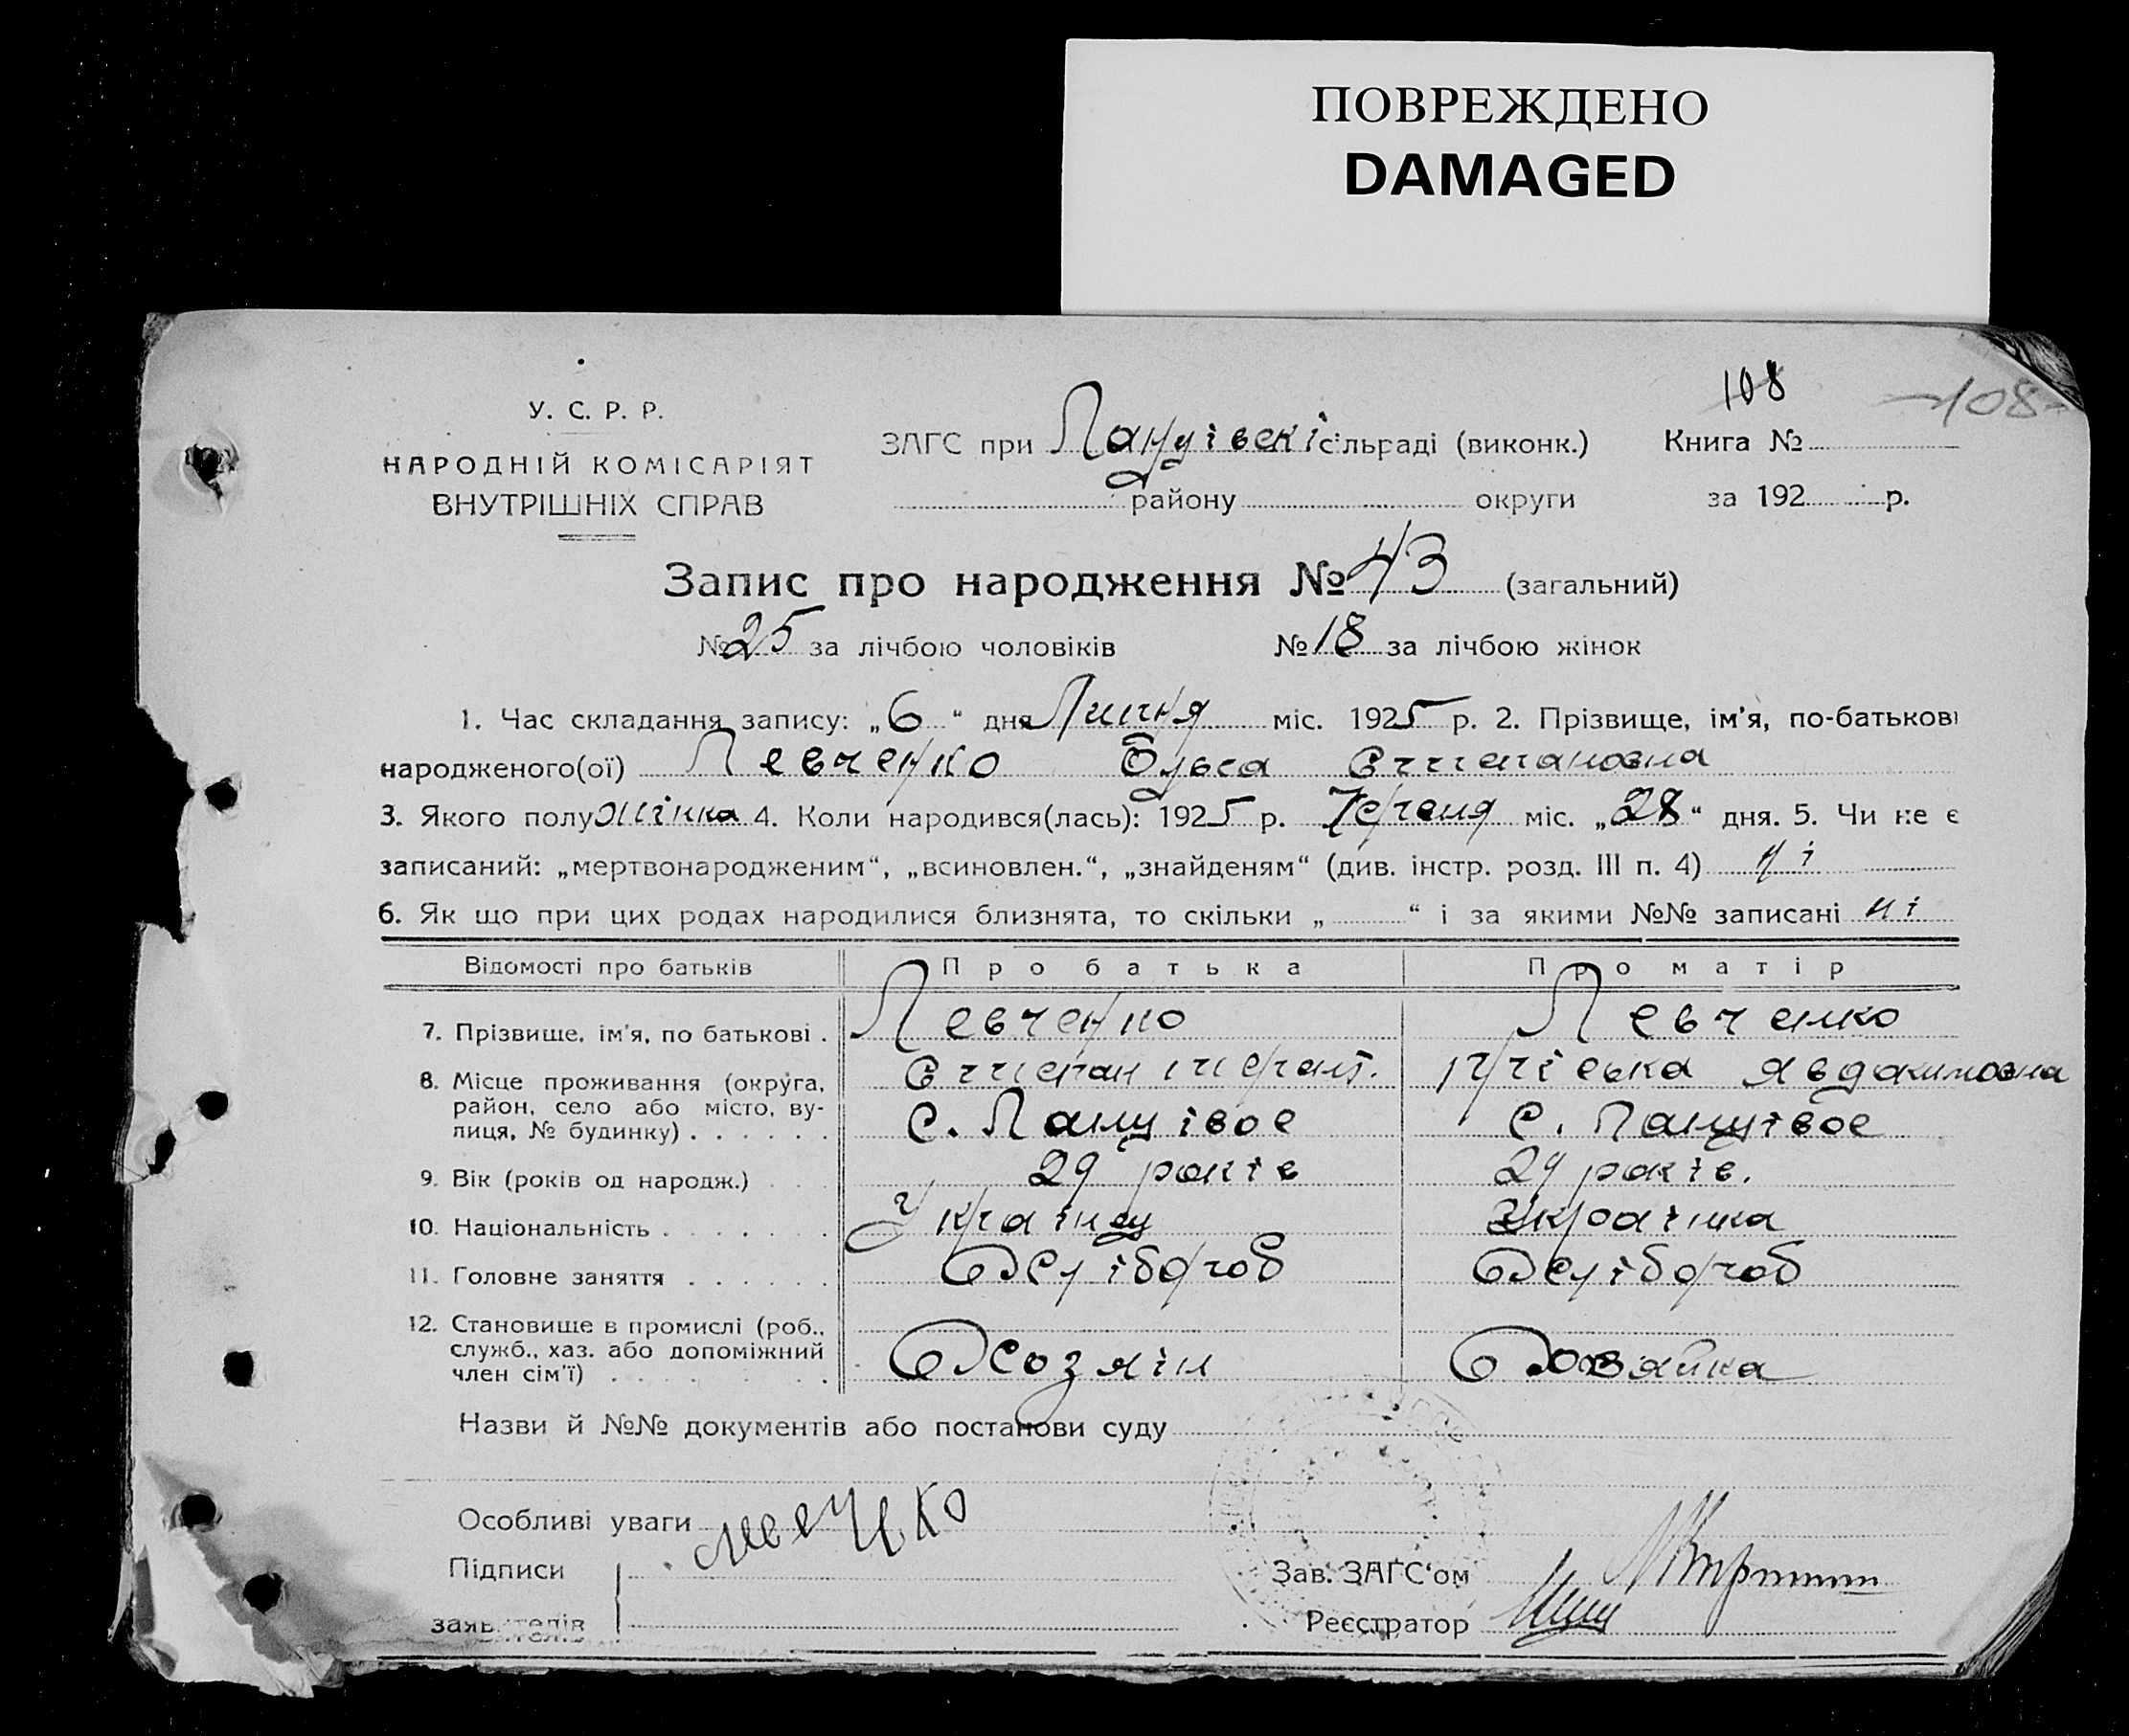 ПОВРЕЖДЕНО
DAMAGED
108
108
У. С. Р. Р.
НАРОДНІЙ КОМІСАРІЯТ
ВНУТРІШНІХ СПРАВ
ЗАГС при Панутівскі сільраді (виконк.) Книга №
району округи за 192 р.
Запис про народження № 43 (загальний)
№ 25 за лічбою чоловіків № 18 за лічбою жінок
1. Час складання запису: „6“ дня Липня міс. 1925 р. 2. Прізвище, ім'я, по-батькові
народженого(ої) Левченко
3. Якого полу жінка 4. Коли народився(лась): 1925 р. Червня міс. „28“ дня. 5. Чи не є
записаний: „мертвонародженим“, „всиновлен.“, „знайденям“ (див. інстр. розд. III п. 4) ні
6. Як що при цих родах народилися близнята, то скільки „ “ і за якими №№ записані ні
Відомості про батьків Про батька Про матір
7. Прізвище, ім'я, по батькові . Левченко Левченко
8. Місце проживання (округа, Явдакимовна
район, село або місто, ву- с. Панутівое с. Панутівое
лиця, № будинку) . . . . . .
9. Вік (років од народж.) 29 років 29 років.
10. Національність . . . . . . . Українец Українка
11. Головне заняття . . . . . . Хлібороб Хлібороб
12. Становище в промислі (роб.,
служб., хаз. або допоміжний Хозяін Хозяйка
член сім'ї)
Назви й №№ документів або постанови суду
Особливі уваги
Підписи Зав. ЗАГС'ом
заявителів Реєстратор